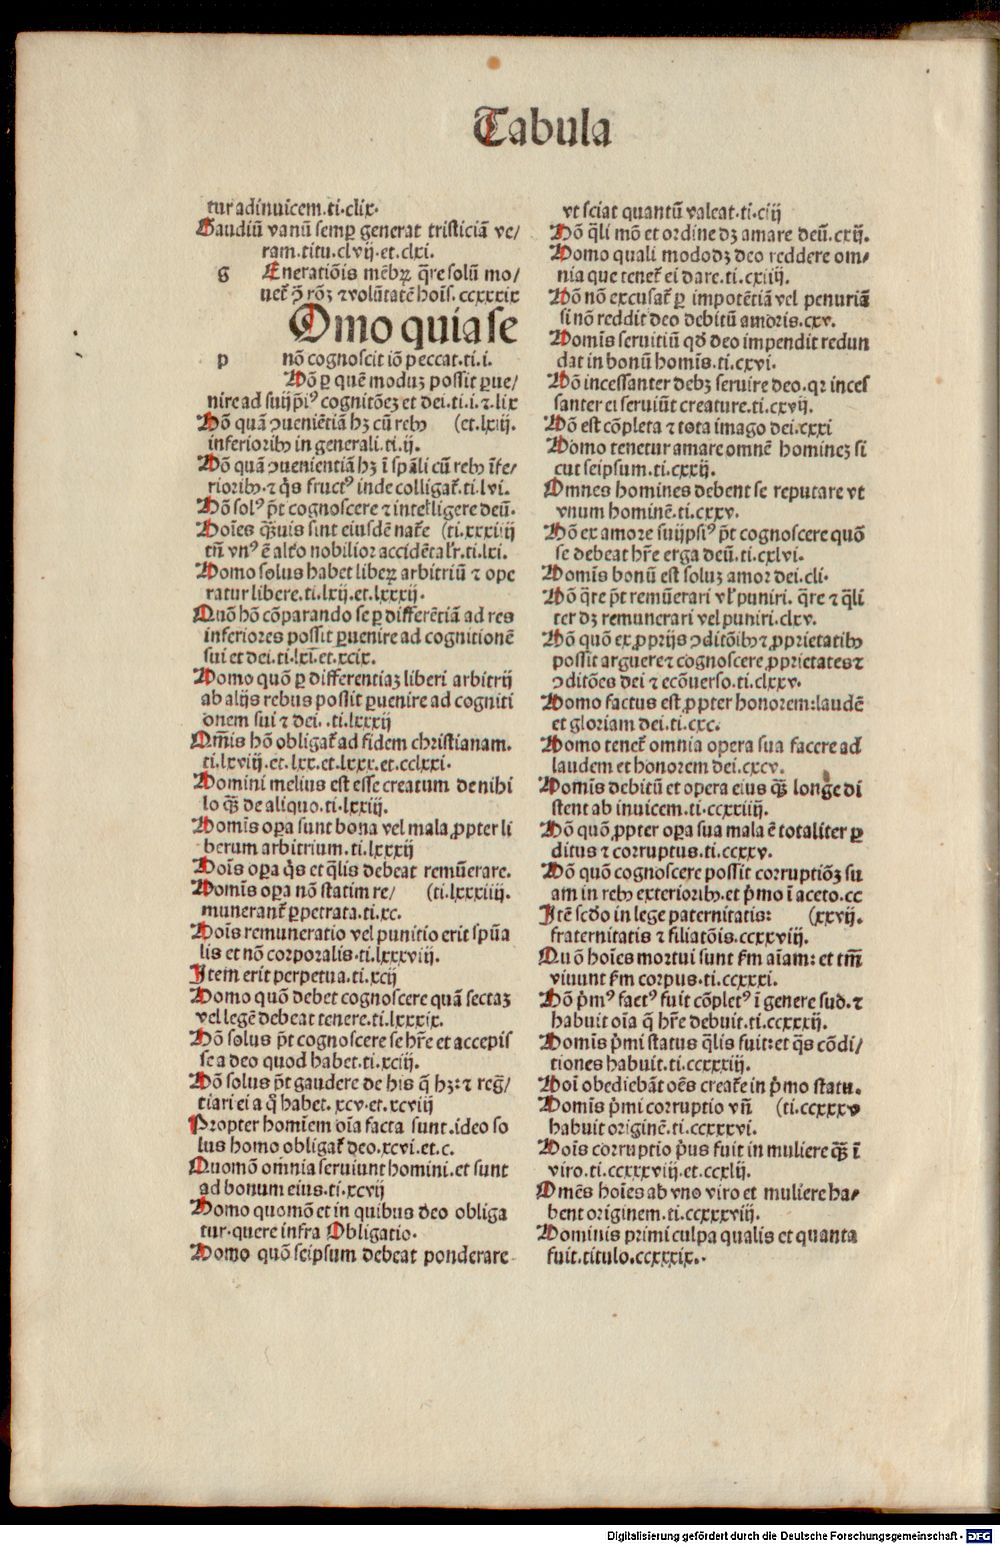 Tabula
tur adinuicem.ti.clix.
Gaudiū vanū semꝑ generat tristiciā ve/
ram.titu.clvij.et.clxi.
g Eneratiōis mēbꝝ q̄re solū mo/
uet᷑ ꝓ rōꝫ ⁊ volūtatē hoīs. ccxxxix
Omo quia se
p nō cognoscit iō peccat.ti.i.
Hō ꝑ quē moduꝫ possit ꝑue/
nire ad suijp̄iꝰ cognitōeꝫ et dei.ti.i.⁊.lix
Hō quā ꝯueniētiā hꝫ cū rebꝰ (et.lxiij.
inferioribꝰ in generali.ti.ij.
Hō quā ꝯuenientiā hꝫ ī sp̄ali cū rebꝰ īfe/
rioribꝰ.⁊ q̄s fructꝰ inde colligat᷑.ti.lvi.
Hō solꝰ p̄t cognoscere ⁊ intelligere deū.
Hoīes q̄ꝫuis sint eiusdē nat᷑e (ti.xxxiiij
tn̄ vnꝰ ē alt᷑o nobilior accidētal᷑r.ti.lxi.
Homo solus habet libeꝝ arbitriū ⁊ ope
ratur libere.ti.lxij.et.lxxxij.
Quō hō cōparando se ꝑ differētiā ad res
inferiores possit ꝑuenire ad cognitionē
sui et dei.ti.lxī.et.xcix.
Homo quō ꝑ differentiaꝫ liberi arbitrij
ab alijs rebus possit ꝑuenire ad cogniti
onem sui ⁊ dei. .ti.lxxxij
Om̄is hō obligat᷑ ad fidem christianam.
ti.lxviij.et.lxx.et.lxxx.et.cclxxi.
Homini melius est esse creatum de nihi
lo q̄ꝫ de aliquo.ti.lxxiij.
Homīs oꝑa sunt bona vel mala ꝓpter li
berum arbitrium.ti.lxxxij
Hoīs oꝑa q̄s et q̄lis debeat remūerare.
Homīs oꝑa nō statim re/ (ti.lxxxiiij.
munerant᷑ ꝑpetrata.ti.xc.
Hoīs remuneratio vel punitio erit spūa
lis et nō corporalis.ti.lxxxviij.
Item erit perpetua.ti.xcij
Homo quō debet cognoscere quā sectaꝫ
vel legē debeat tenere.ti.lxxxix.
Hō solus p̄t cognoscere se hr̄e et accepis
se a deo quod habet.ti.xciij.
Hō solus p̄t gaudere de his q̄ hꝫ:⁊ reḡ/
tiari ei a q̄ habet. xcv.et.xcviij
Propter homīem oīa facta sunt.ideo so
lus homo obligat᷑ deo.xcvi.et.c.
Quomō omnia seruiunt homini.et sunt
ad bonum eius.ti.xcvij
Homo quomō et in quibus deo obliga
tur.quere infra Obligatio.
Homo quō seipsum debeat ponderare
vt sciat quantū valeat.ti.ciij
Hō q̄li mō et ordine dꝫ amare deū.cxij.
Homo quali mododꝫ deo reddere om/
nia que tenet᷑ ei dare.ti.cxiiij.
Hō nō excusat᷑ ꝑ impotētiā vel penuriā
si nō reddit deo debitū amoris.cxv.
Homīs seruitiū qđ deo impendit redun
dat in bonū homīs.ti.cxvi.
Hō incessanter debꝫ seruire deo.qꝛ inces
santer ei seruiūt creature.ti.cxvij.
Hō est cōpleta ⁊ tota imago dei.cxxi
Homo tenetur amare omnē homineꝫ si
cut seipsum.ti.cxxij.
Omnes homines debent se reputare vt
vnum hominē.ti.cxxv.
Hō ex amore suijpsiꝰ p̄t cognoscere quō
se debeat hr̄e erga deū.ti.cxlvi.
Homīs bonū est soluꝫ amor dei.cli.
Hō q̄re p̄t remūerari vl᷑ puniri. q̄re ⁊ q̄li
ter dꝫ remunerari vel puniri.clxv.
Hō quō ex ꝓprijs ꝯditōibꝰ ⁊ ꝓprietatibꝰ
possit arguere ⁊ cognoscere ꝓprietates ⁊
ꝯditōes dei ⁊ ecōuerso.ti.clxxv.
Homo factus est ꝓpter honorem:laudē
et gloriam dei.ti.cxc.
Homo tenet᷑ omnia opera sua facere ad
laudem et honorem dei.cxcv.
Homīs debitū et opera eius q̄ꝫ longe di
stent ab inuicem.ti.ccxxiiij.
Hō quō ꝓpter oꝑa sua mala ē totaliter ꝑ
ditus ⁊ corruptus.ti.ccxxv.
Hō quō cognoscere possit corruptiōꝫ su
am in rebꝰ exterioribꝰ.et p̄mo ī aceto.cc
Itē scđo in lege paternitatis: (xxvij.
fraternitatis ⁊ filiatōis.ccxxviij.
Quō hoīes mortui sunt ẜm aīam: et tm̄
viuunt ẜm corpus.ti.ccxxxi.
Hō p̄mꝰ factꝰ fuit cōpletꝰ ī genere suo.⁊
habuit oīa q̄ hr̄e debuit.ti.ccxxxij.
Homīs p̄mi status q̄lis fuit:et q̄s cōdi/
tiones habuit.ti.ccxxxiij.
Hoī obediebāt oēs creat᷑e in p̄mo statu.
Homīs p̄mi corruptio vn̄ (ti.ccxxxv
habuit originē.ti.ccxxxvi.
Hoīs corruptio p̄us fuit in muliere q̄ꝫ ī
viro.ti.ccxxxviij.et.ccxlij.
Omēs hoīes ab vno viro et muliere ha/
bent originem.ti.ccxxxviij.
Hominis primi culpa qualis et quanta
fuit.titulo.ccxxxix..
Digitalisierung gefördert durch die Deutsche Forschungsgemeinschaft - DFG